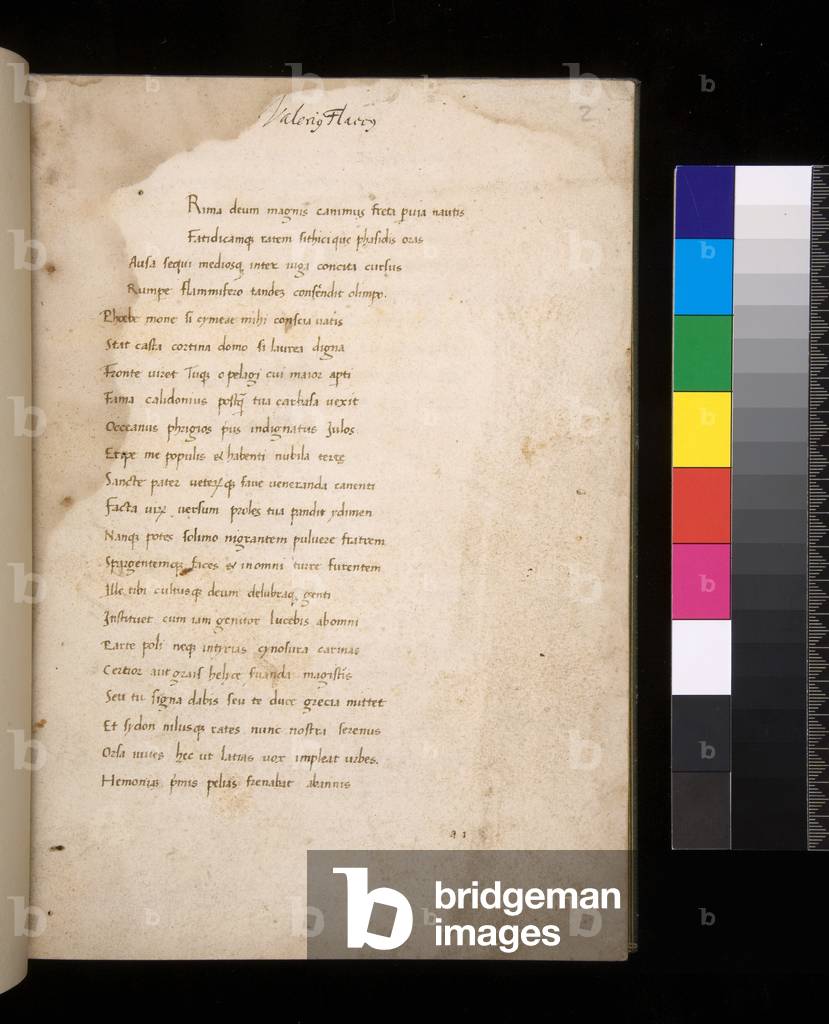 Valerio Flacco
2
Rima deum magnis canimus freta puia nautis
Fatidicamq ratem sithicique phasidis oras
Ausa sequi mediosq inter iuga concita cursus
Rumpe flammifero tandez consendit olimpo.
Phoebe mone si cymeae mihi conscia uatis
Stat casta cortina domo si laurea digna
Fronte uiret Tuq o pelagi cui maior apti
Fama calidonius postq tua carbasa uexit
Occeanus phrigios pus indignatus Julos
Eripe me populis & habenti nubila terrę
Sancte pater ueterꝝq faue ueneranda canenti
Facta uiꝝ uersum proles tua pandit ydimen
Nanq potes solimo nigrantem puluere fratrem
Spargentemq faces & inomni turre furentem
Ille tibi cultusq deum delubraq genti
Instituet cum iam genitor lucebis abomni
Parte poli neq intyrias cynosura carinas
Certior aut grais helice magistis
Seu tu signa dabis seu te duce grecia mittet
Et sydon nilusq rates nunc nostra serenus
Orsa iuues hęc ut latias uox impleat urbes.
Hemoniaz pmis pelias frenabat abannis
a 1
b bridgeman
images